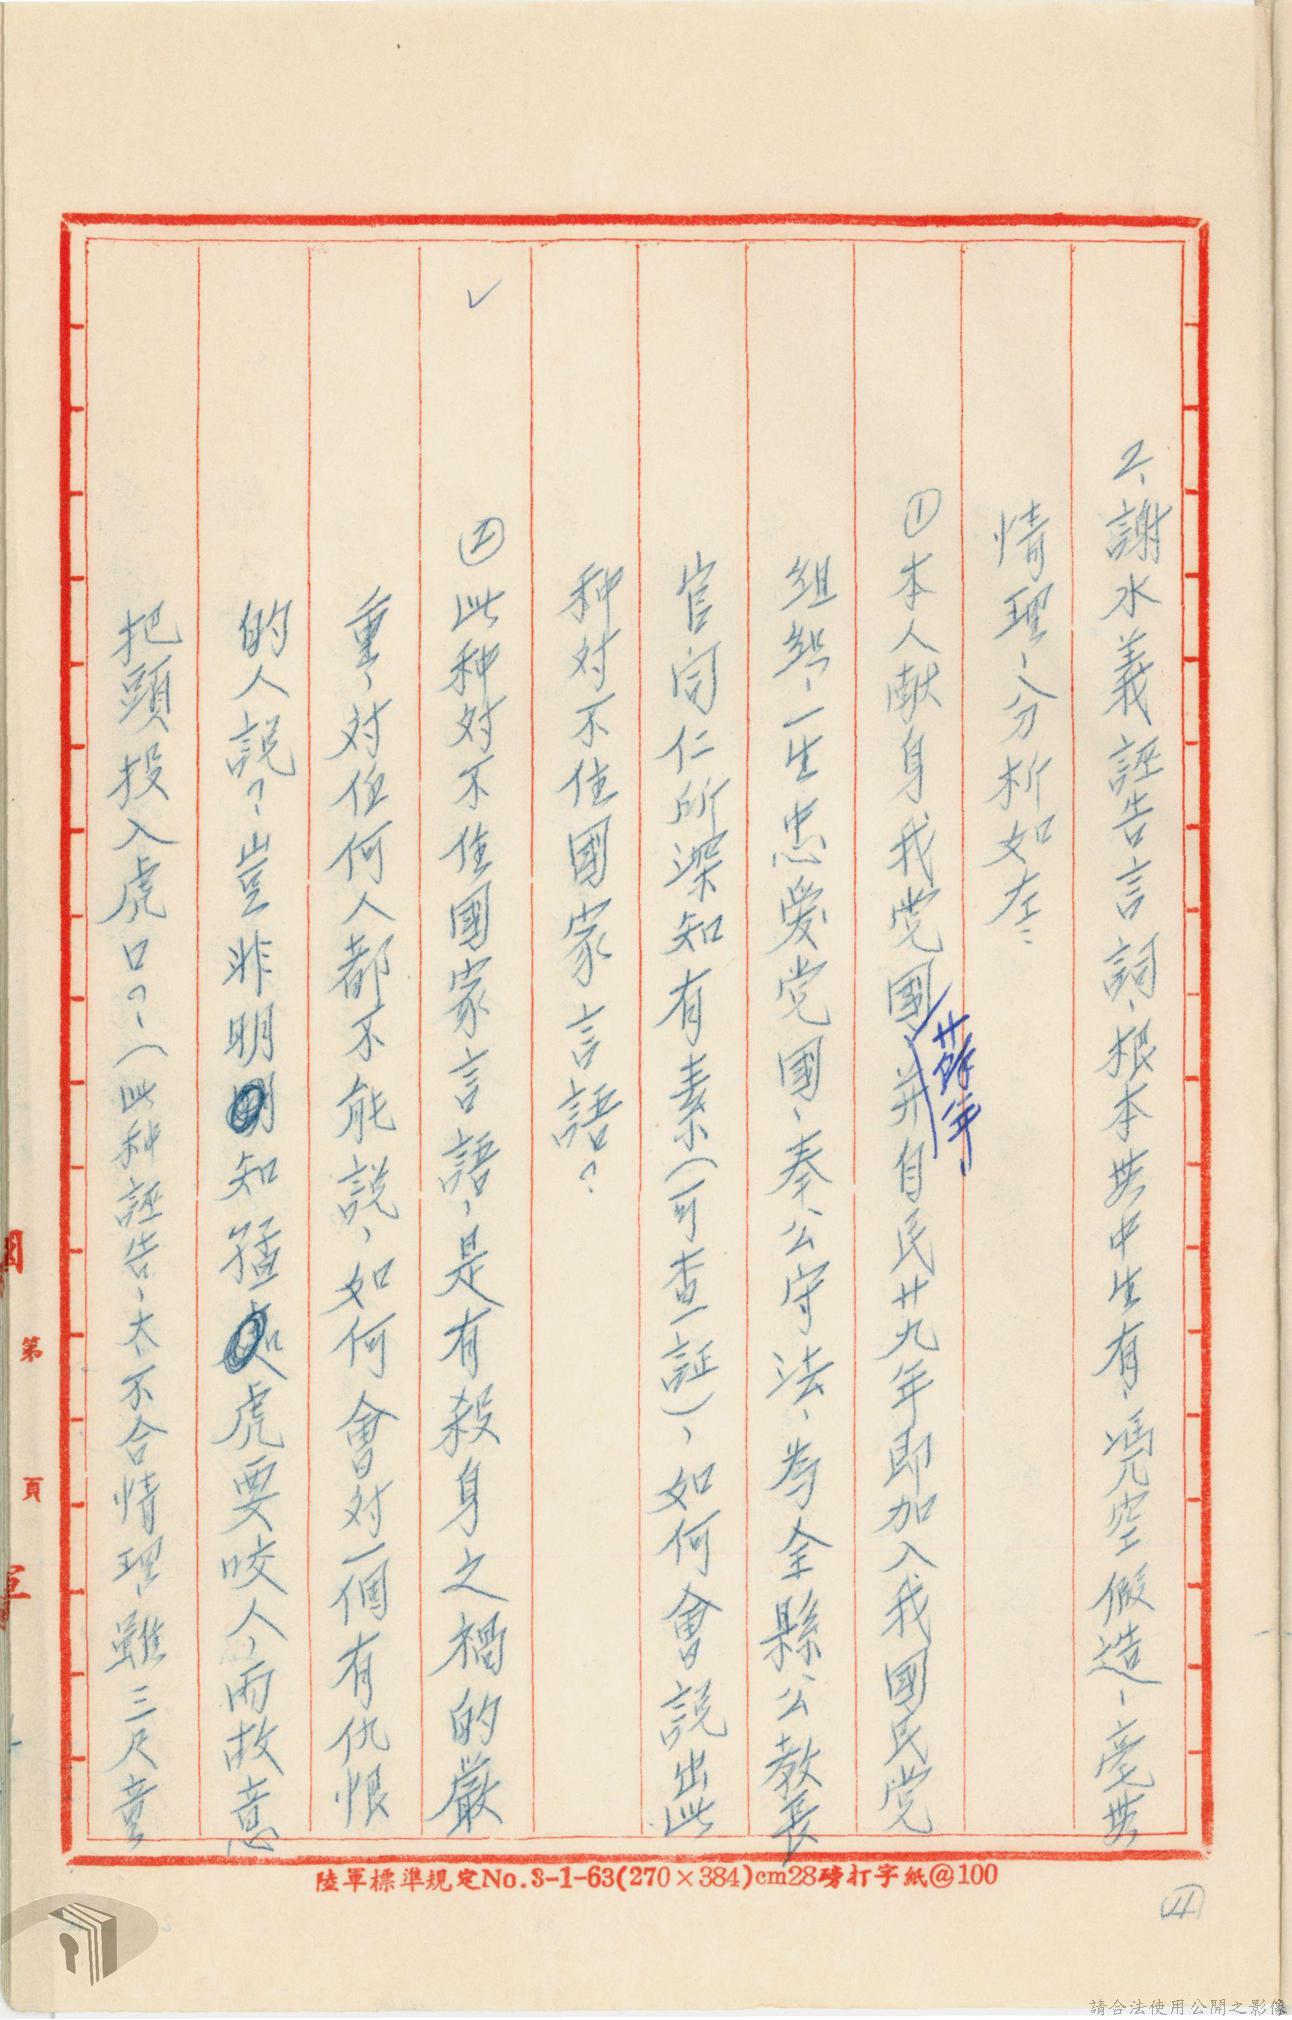 2、謝水義誣告言詞、根本無中生有、馮空假造、毫無
情理、分析如左：
①本人献身我党國、并自民廿九年即加入我國民党
廿餘年、
組織、一生忠爱党國、奉公守法、為全縣公教長
官同仁所深知有素（可查一証）、如何會説出此
种对不住國家言語？
②此种对不住國家言語，是有殺身之禍的嚴
重，对任何人都不能説，如何會对一個有仇恨
的人説？豈非明知猛虎要咬人，而故意
把頭投入虎口？、（此种誣告、太不合情理、雖三尺童
陸軍標準規定No.3-1-63(270×384)cm28磅打字紙@100
第 頁
④
請合法使用公開之影像